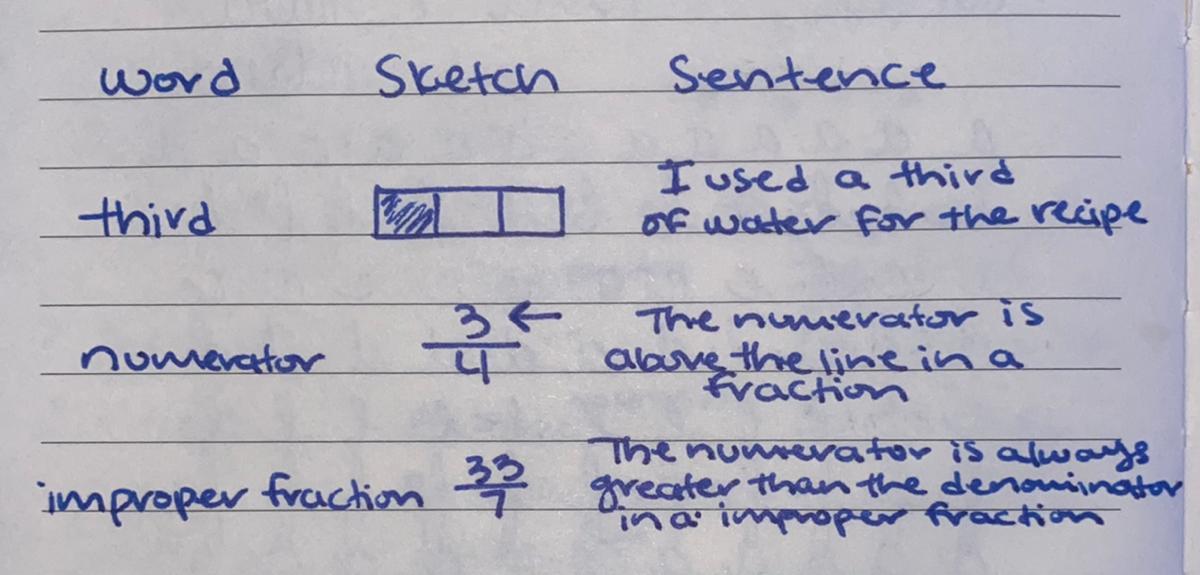 Word Sketch Sentence
third I used a third
of water for the recipe
numerator 3 ← The numerator is
4 above the line in a
fraction
improper fraction 33 The numerator is always
7 greater than the denominator
in a improper fraction